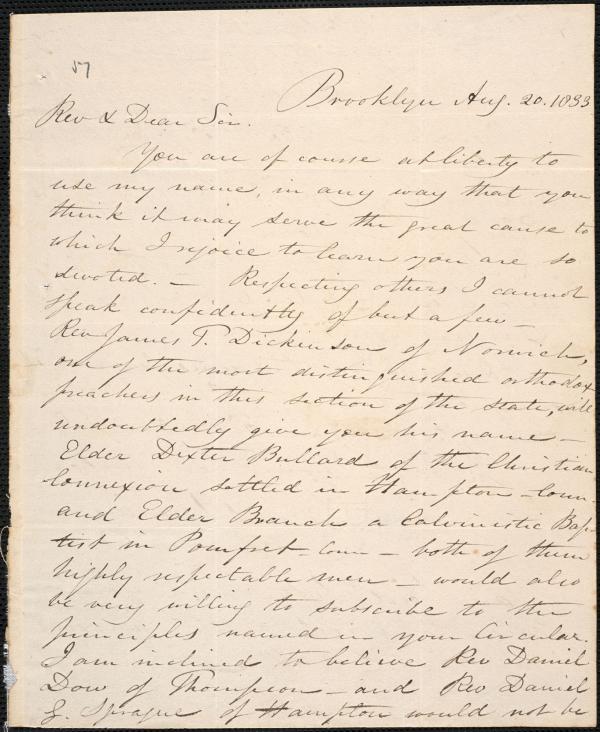 57
Brooklyn Aug. 20. 1833
Rev & Dear Sir.
You are of course at liberty to
use my name, in any way that you
think it may serve the great cause to
which I rejoice to learn you are so
devoted. — Respecting others I cannot
speak confidently of but a few —
Rev James T. Dickinson of Norwich,
one of the most distinguished orthodox
preachers in this section of the state, will
undoubtedly give you his name —
Elder Dexter Bullard of the Christian
Connexion settled in Hampton - Conn -
and Elder Branch a Calvinistic Bap-
tist in Pomfret Conn — both of them
highly respectable men — would also
be very willing to subscribe to the
principles named in your Circular.
I am inclined to believe Rev Daniel
Dow of Thompson — and Rev Daniel
G. Sprague of Hampton would not be